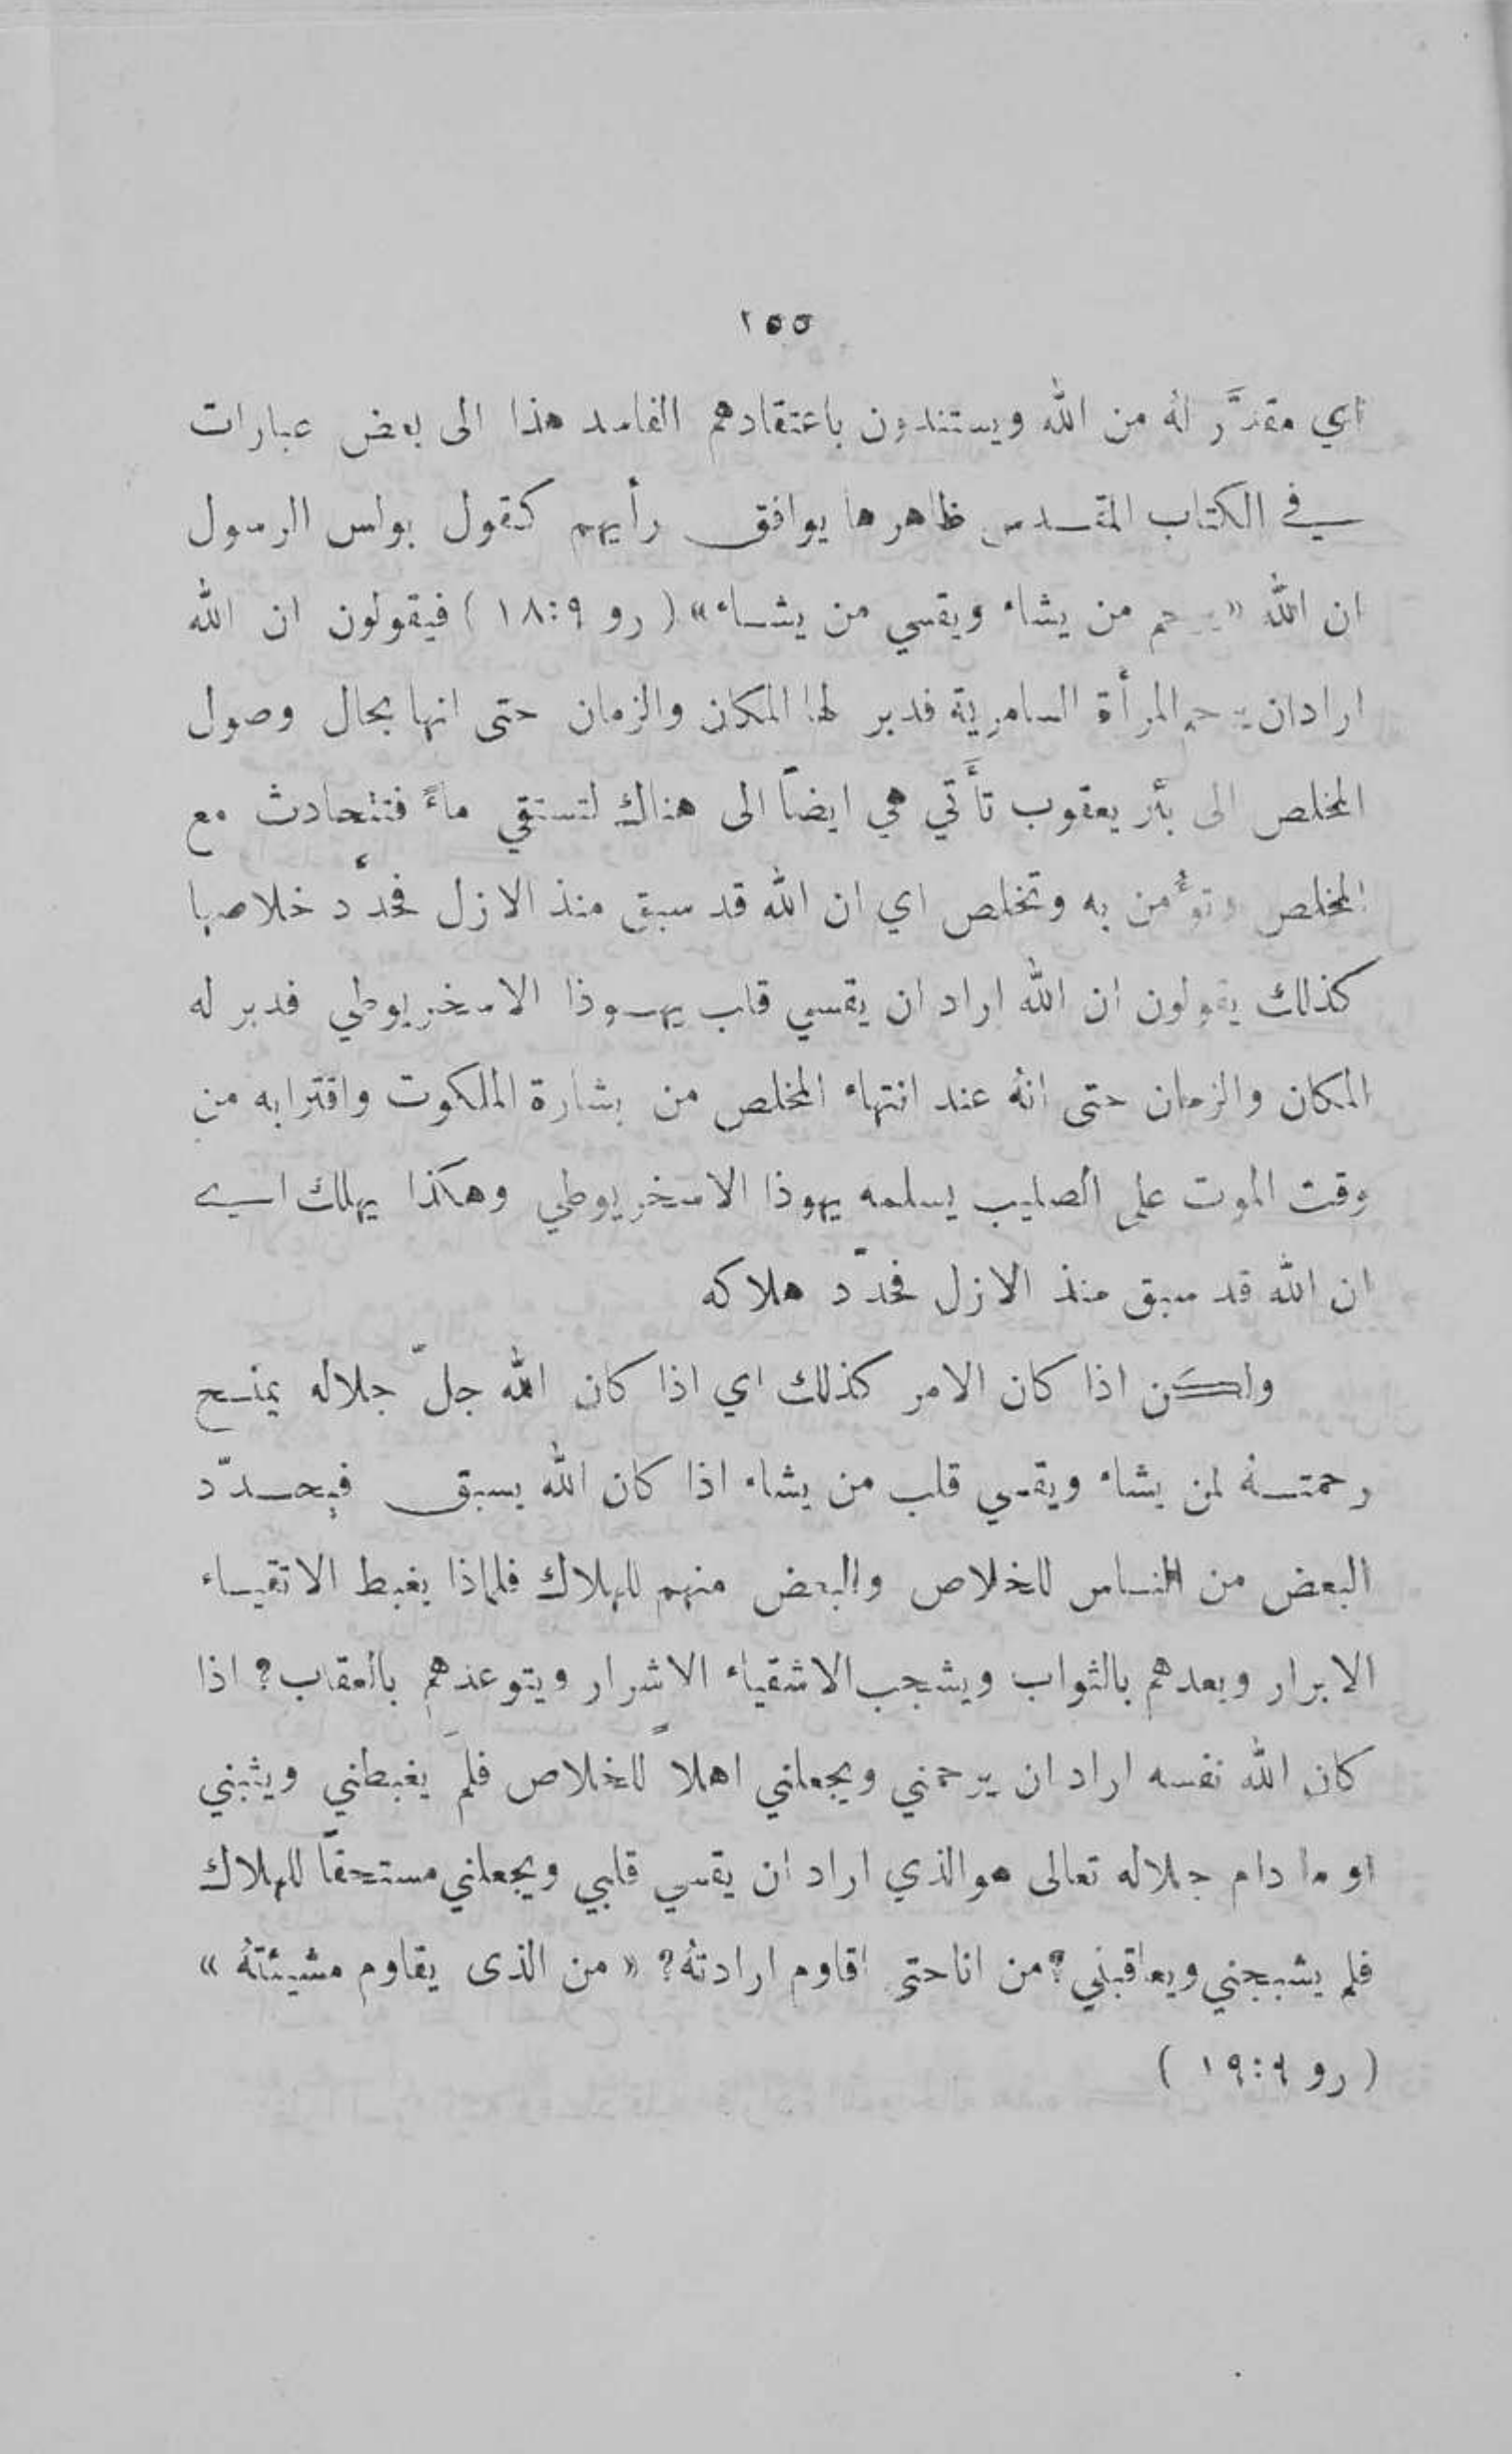 ١٥٥
اي مقدَّر لهُ من الله ويستندون باعتقادهم الفاسد هذا الى بعض عبارات
في الكتاب المقدس ظاهرها يوافق رأيهم كقول بولس الرسول
ان الله «يرحم من يشاء ويقسي من يشاء» (رو ١٨:٩) فيقولون ان الله
اراد ان يرحم المرأة السامرية فدبر لها المكان والزمان حتى انها بحال وصول
المخلص الى بئر يعقوب تأتي هي ايضاً الى هناك لتستقي ماءً فتتحادث مع
المخلص وتؤْمن به وتخلص اي ان الله قد سبق منذ الازل فحدَّد خلاصها
كذلك يقولون ان الله اراد ان يقسي قلب يهوذا الاسخريوطي فدبر له
المكان والزمان حتى انهُ عند انتهاء المخلص من بشارة الملكوت واقترابه من
وقت الموت على الصليب يسلمه يهوذا الاسخريوطي وهكذا يهلك اي
ان الله قد سبق منذ الازل فحدّد هلاكه
ولكن اذا كان الامر كذلك اي اذا كان الله جلّ جلاله يمنح
رحمتهُ لمن يشاء ويقسي قلب من يشاء اذا كان الله يسبق فيحدّد
البعض من الناس للخلاص والبعض منهم للهلاك فلماذا يغبط الاتقياء
الابرار ويعدهم بالثواب ويشجب الاشقياء الاشرار ويتوعدهم بالعقاب؟ اذا
كان الله نفسه اراد ان يرحمني ويجعلني اهلاً للخلاص فلمَ يغبطني ويثبني
او ما دام جلاله تعالى هو الذي اراد ان يقسي قلبي ويجعلني مستحقّاً للهلاك
فلم يشجبني ويعاقبني؟ من انا حتى اقاوم ارادتهُ؟ «من الذى يقاوم مشيئتهُ»
(رو ١٩:٩)